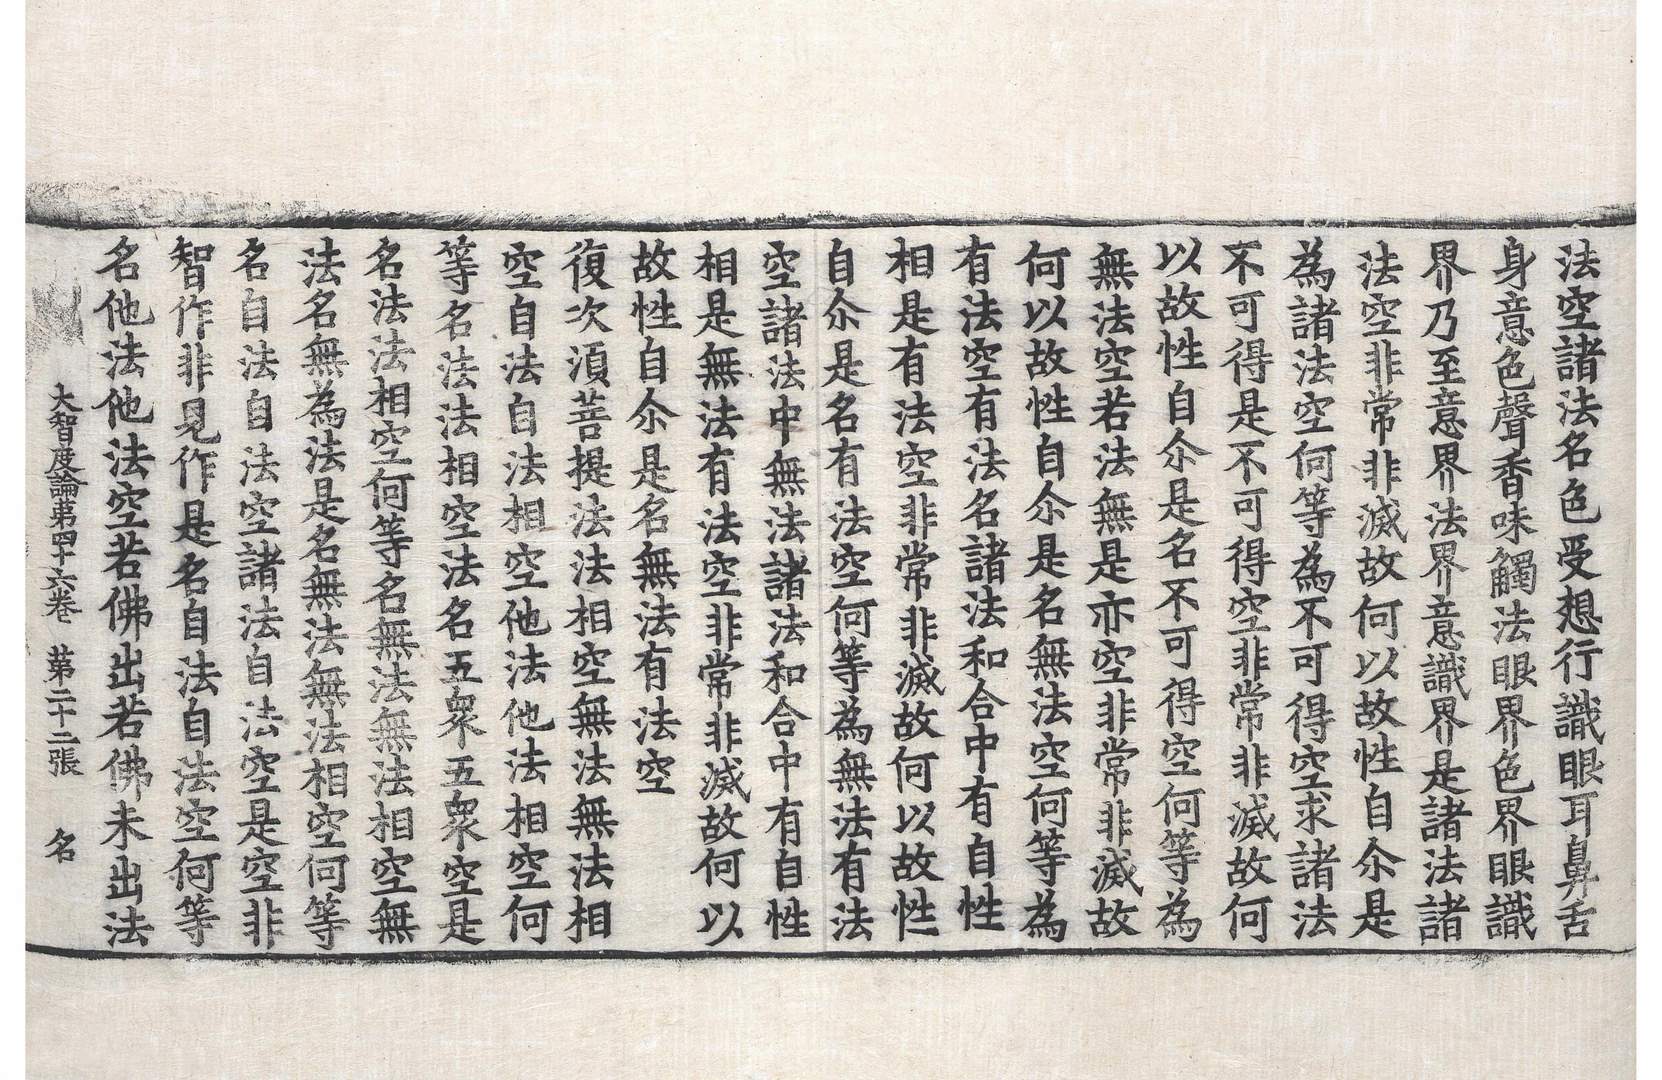 法空諸法名色受想行識眼耳鼻舌
身意色聲香味觸法眼界色界眼識
界乃至意界法界意識界是諸法諸
法空非常非滅故何以故性自尒是
為諸法空何等為不可得空求諸法
不可得是不可得空非常非滅故何
以故性自尒是名不可得空何等為
無法空若法無是亦空非常非滅故
何以故性自尒是名無法空何等為
有法空有法名諸法和合中有自性
相是有法空非常非滅故何以故性
自尒是名有法空何等為無法有法
空諸法中無法諸法和合中有自性
相是無法有法空非常非滅故何以
故性自尒是名無法有法空
復次湏菩提法法相空無法無法相
空自法自法相空他法他法相空何
等名法法相空法名五衆五衆空是
名法法相空何等名無法無法相空無
法名無為法是名無法無法相空何等
名自法自法空諸法自法空是空非
智作非見作是名自法自法空何等
名他法他法空若佛出若佛未出法
大智度論第四十六卷 第二十二張 名